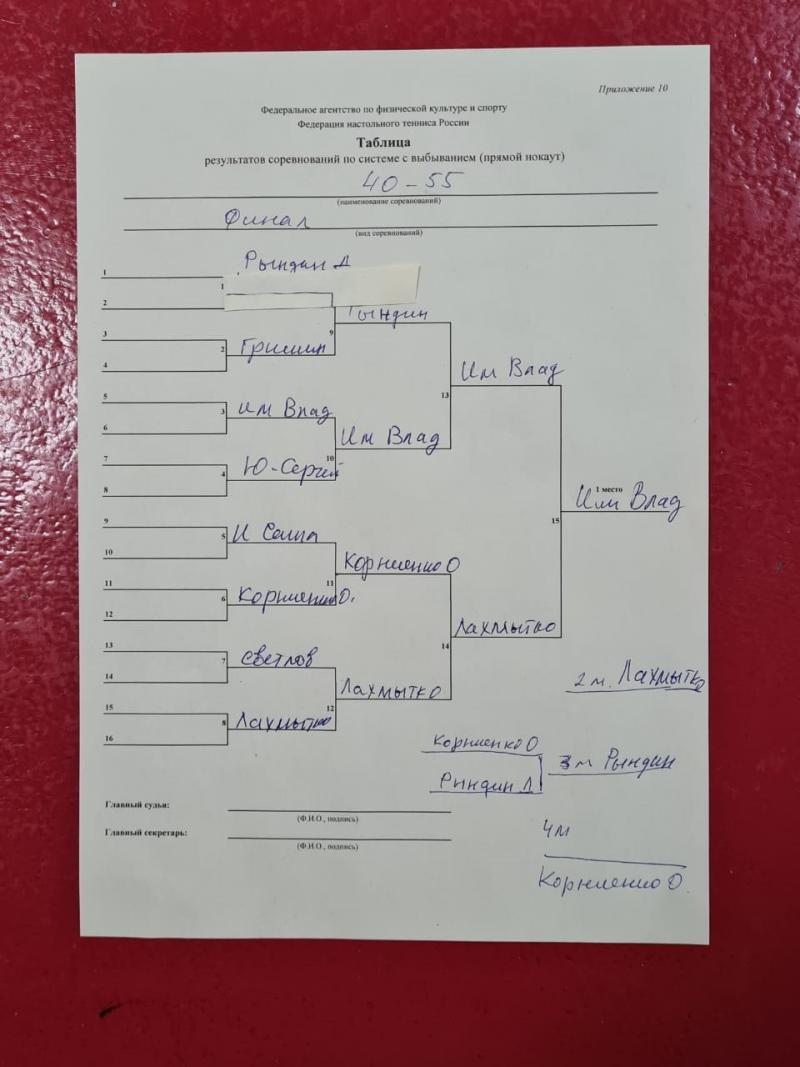 Приложение 10
Федеральное агентство по физической культуре и спорту
Федерация настольного тенниса России
Таблица
результатов соревнований по системе с выбыванием (прямой нокаут)
40-55
(наименование соревнований)
Финал
(вид соревнований)
Рындин Д
1
1
2
Рындин
9
3
2 Гришин
4
Им Влад
13
5
3 Им Влад
6
Им Влад
10
7
4 Ю-Сергей
8
1 место
Им Влад
15
9
5 И Саша
10
Корниенко О
11
11
6 Корниенко О.
12
Лахмытко
14
13
7 Светлов
14
2 м. Лахмытко
Лахмытко
12
15
8 Лахмытко
16
Корниенко О
3 м Рындин
Рындин Д
Главный судья:
(Ф.И.О., подпись)
Главный секретарь:
(Ф.И.О., подпись)
4 м
Корниенко О.